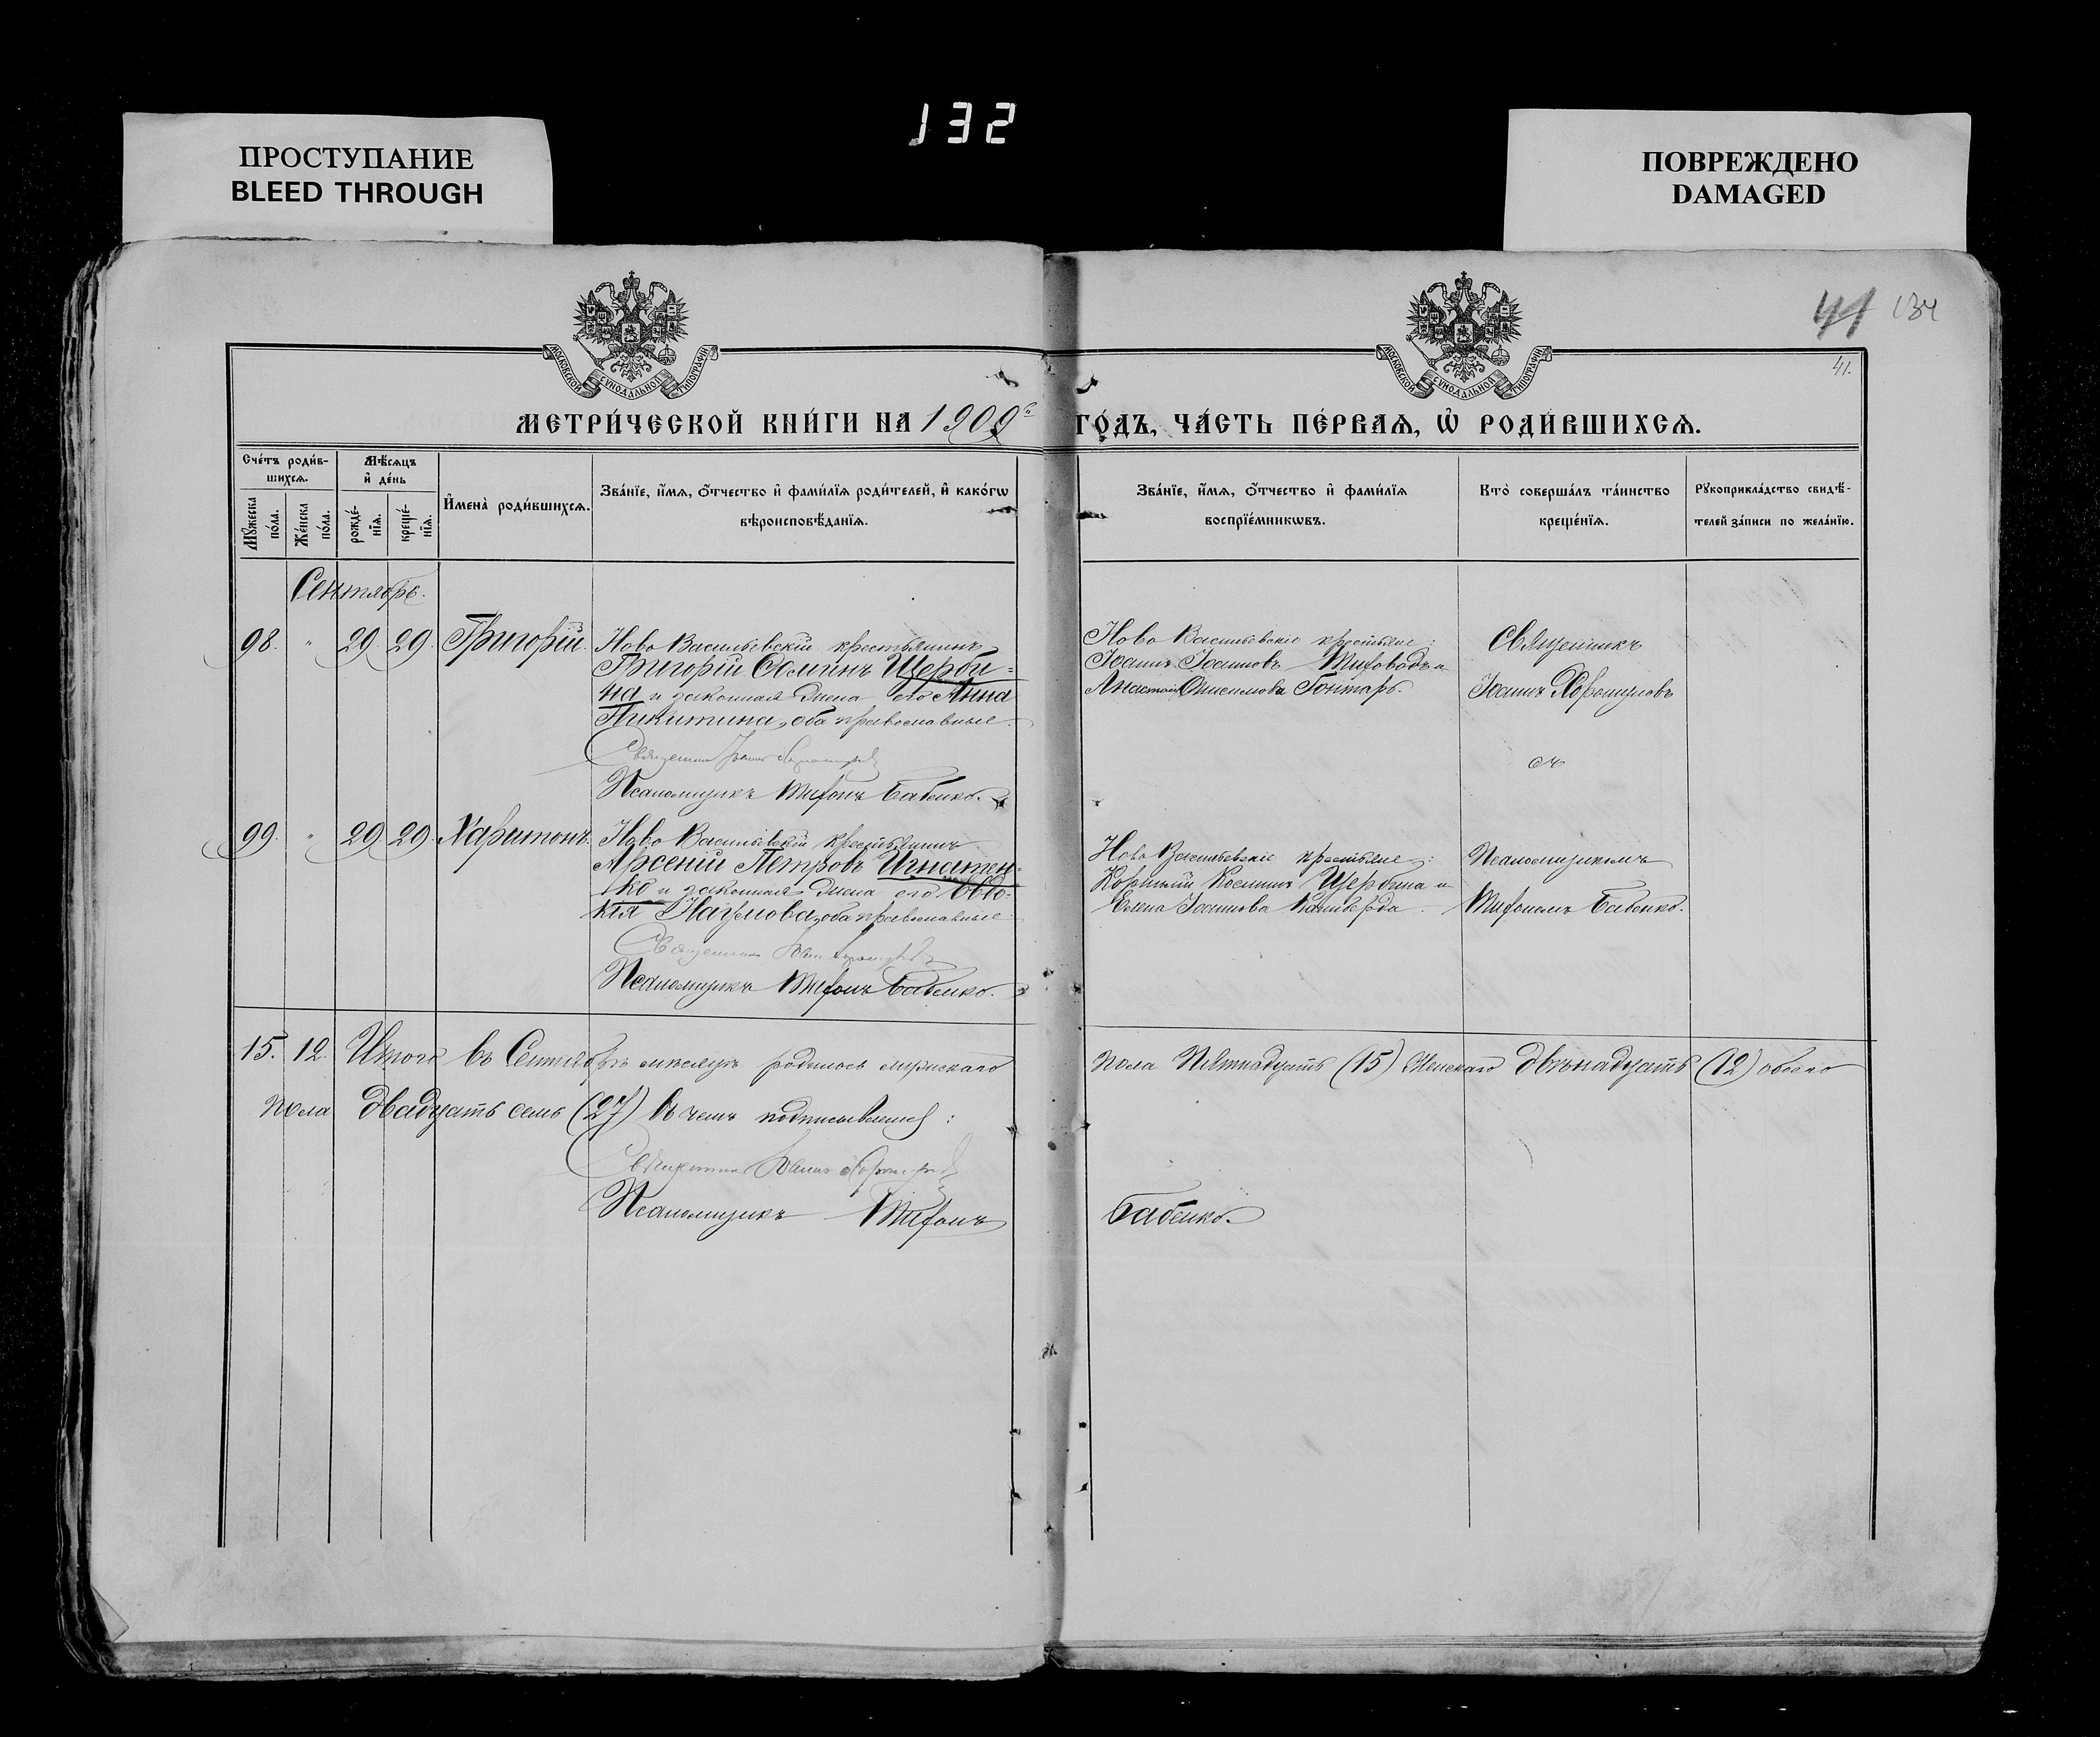 132
ПРОСТУПАНИЕ
BLEED THROUGH
ПОВРЕЖДЕНО
DAMAGED
МОСКОВСКОЙ СУНОДАЛЬНОЙ ТИПОГРАФІИ
МОСКОВСКОЙ СУНОДАЛЬНОЙ ТИПОГРАФІИ
41 134
41.
МЕТРИ́ЧЕСКОЙ КНИ́ГИ НА 1909й ГО́ДЪ, ЧА́СТЬ ПЕ́РВАѦ, Ѡ҆ РОДИ́ВШИХСѦ.
Сче́тъ роди́в-
шихсѧ.
Мꙋ́жеска по́ла.
Же́нска по́ла.
Мѣ́сѧцъ
и҆ де́нь
рожде́-
нїѧ.
креще́-
нїѧ.
И҆мена̀ роди́вшихсѧ.
Зва́нїе, и҆́мѧ, ѻ҆́тчество и҆ фами́лїѧ роди́телей, и҆ како́гѡ
вѣроисповѣ́данїѧ.
Зва́нїе, и҆́мѧ, ѻ҆́тчество и҆ фами́лїѧ
воспрїе́мникѡвъ.
Кто̀ соверша́лъ та́инство
креще́нїѧ.
Рꙋкоприкла́дство свидѣ́-
телей за́писи по жела́нїю.
Сентябрь.
98. " 29. 29. Григорій.
Ново Васильевскій крестьянинъ
Григорій Семинъ Щерби=
на и законная жена его Анна
Никитина, оба православные.
Священникъ Іоаннъ
Псаломщикъ Тихонъ Бабенко.
Ново Васильевскіе крестьяне:
Іоаннъ Іоанновъ и
Анастасія Гонтарь.
Священникъ
Іоаннъ Хорошуновъ
съ
99. " 29. 29. Харитонъ.
Ново Васильевскій крестьянинъ
Арсеній Петровъ Игнатен-
ко и законная жена его Евдо-
кія Наумова, оба православные.
Священникъ
Псаломщикъ Тихонъ Бабенко.
Ново Васильевскіе крестьяне:
Корнилій Косминъ Щербина и
Елена Іоаннова
Псаломщикомъ
Тихономъ Бабенко.
15. 12. Итого въ Сентябрѣ мѣсяцѣ родилось мужскаго пола Пятнадцать (15) Женскаго двѣнадцать (12) обоего
пола двадцать семь (27) въ чемъ подписываемся:
Священникъ Іоаннъ
Псаломщикъ Тихонъ Бабенко.